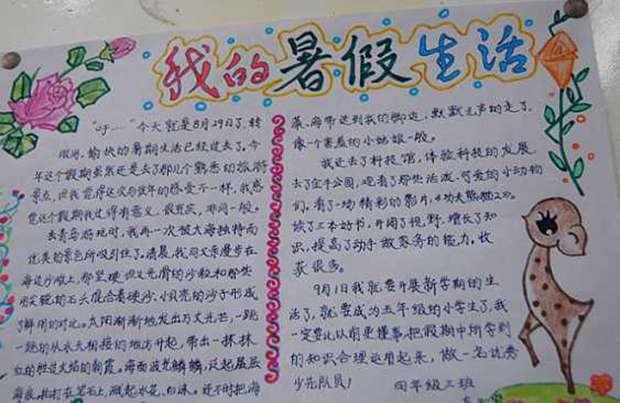 我的暑假生活
"哼……"今天就是8月29日了,转
眼间,愉快的暑期生活已经过去了。今
年这个假期虽然还是去了那几个熟悉的旅游
景点,但我觉得这次与往年的感受不一样,我感
觉这个假期我过得有意义,很充实,非同一般。
去青岛游玩时,我再一次被大海独特而
优美的景色所吸引住了。清晨,我同父亲漫步在
海边沙滩上,那坚硬但又光滑的沙粒和那些
用尖锐的石头混合着硬沙、小贝壳的沙子形成
了鲜明的对比。太阳渐渐地发出万丈光芒,一跳
一跳的从水天相接的地方升起,带出一抹抹
红的胜过火焰的朝霞。海面波光粼粼,泛起层层
海浪,扑打在岩石上,溅起水花、白沫。还不时把海
藻、海带送到我的脚边,默默无声的走了,
像个害羞的小姑娘一般。
我还去了科技馆,体验科技的发展
去了金牛公园,观看了那些活泼、可爱的小动物
们,看了一场精彩的影片《功夫熊猫2》。
读了三本好书,开阔了视野,增长了知
识,提高了动手做家务的能力。收
获很多。
9月1日我就要开展新学期的生
活了,就要成为五年级的小学生了,我
一定要比以前更懂事,把假期中所学到
的知识合理运用起来,做一名优秀
少先队员!
四年级三班